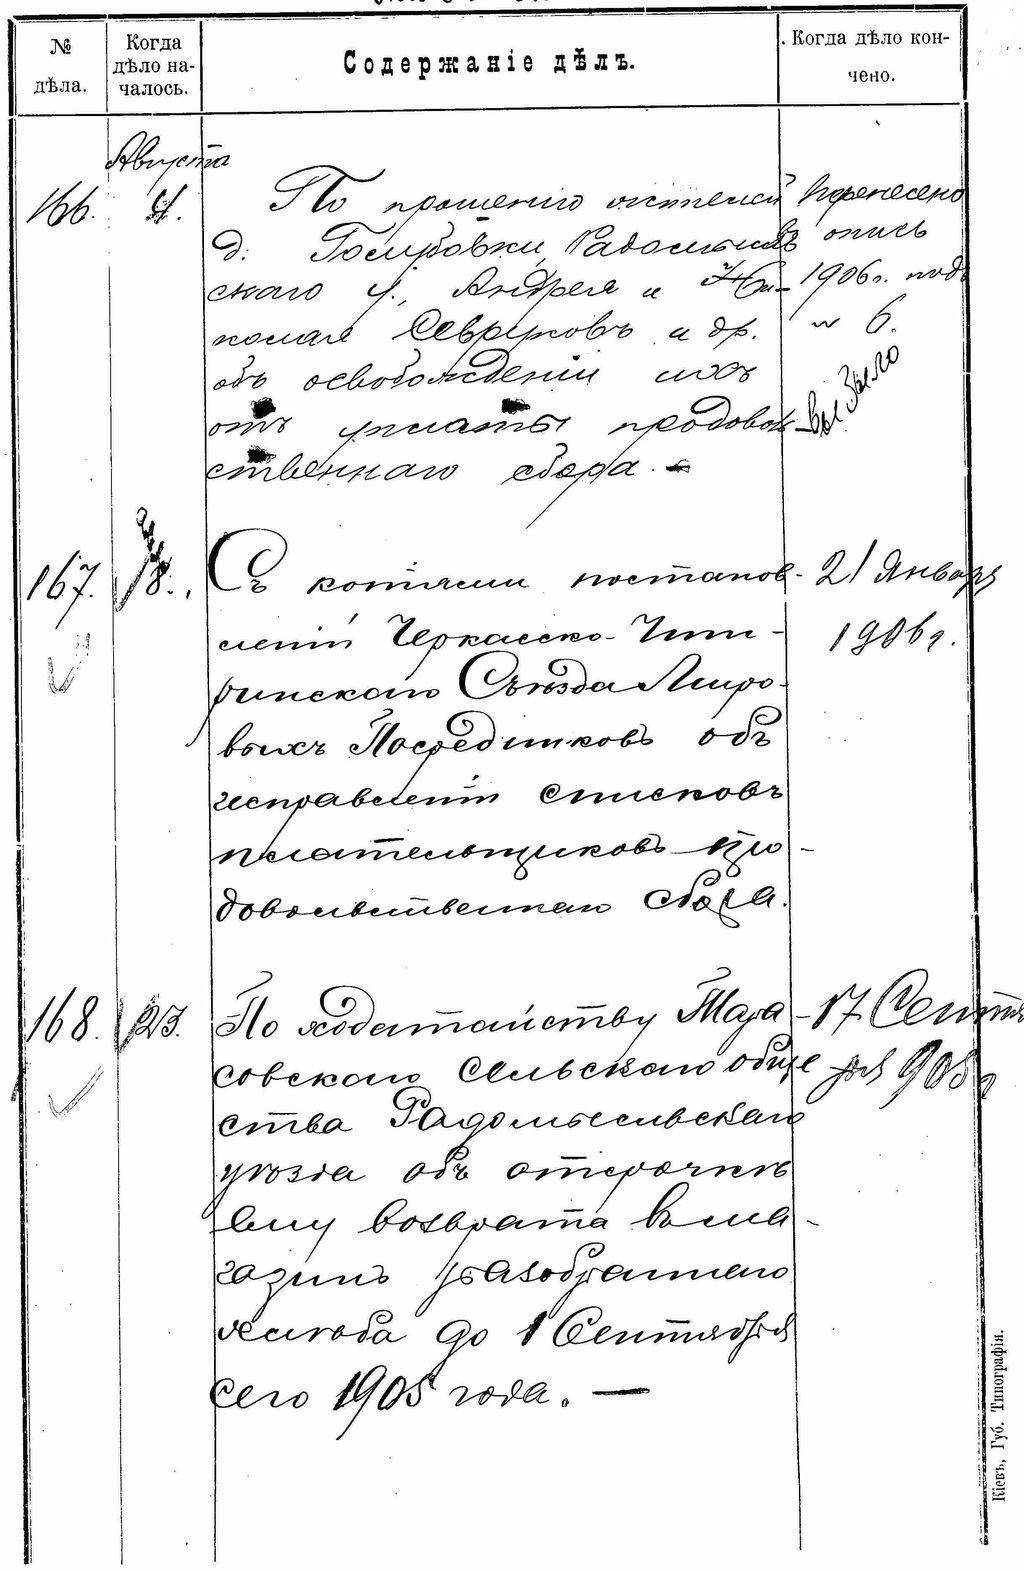 № дѣла.
Когда дѣло на-чалось.
Содержаніе дѣлъ.
Когда дѣло кон-чено.
Августа
166. 4.
По прошенію жителей
д. Радомысль-
скаго у., Андрея и Ни-
колая и др.
объ освобожденіи ихъ
отъ уплаты продоволь-
ственнаго сбора. —
Перенесено
опись
1906 г. подъ
№ 6.
167. 18.
Съ копіями постанов-
леній Черкасско-Чиги-
ринскаго Съѣзда Миро-
выхъ Посредниковъ объ
исправленіи списковъ
плательщиковъ про-
довольственнаго сбора.
21 Января
1906 г.
168. 23.
По ходатайству Тара-
совскаго сельскаго обще
ства Радомысельскаго
уѣзда объ отсрочкѣ
ему возврата въ ма-
газинъ разобраннаго
хлѣба до 1 Сентября
сего 1905 года. —
17 Сентя
бря 905 г
Кіевъ, Губ. Типографія.